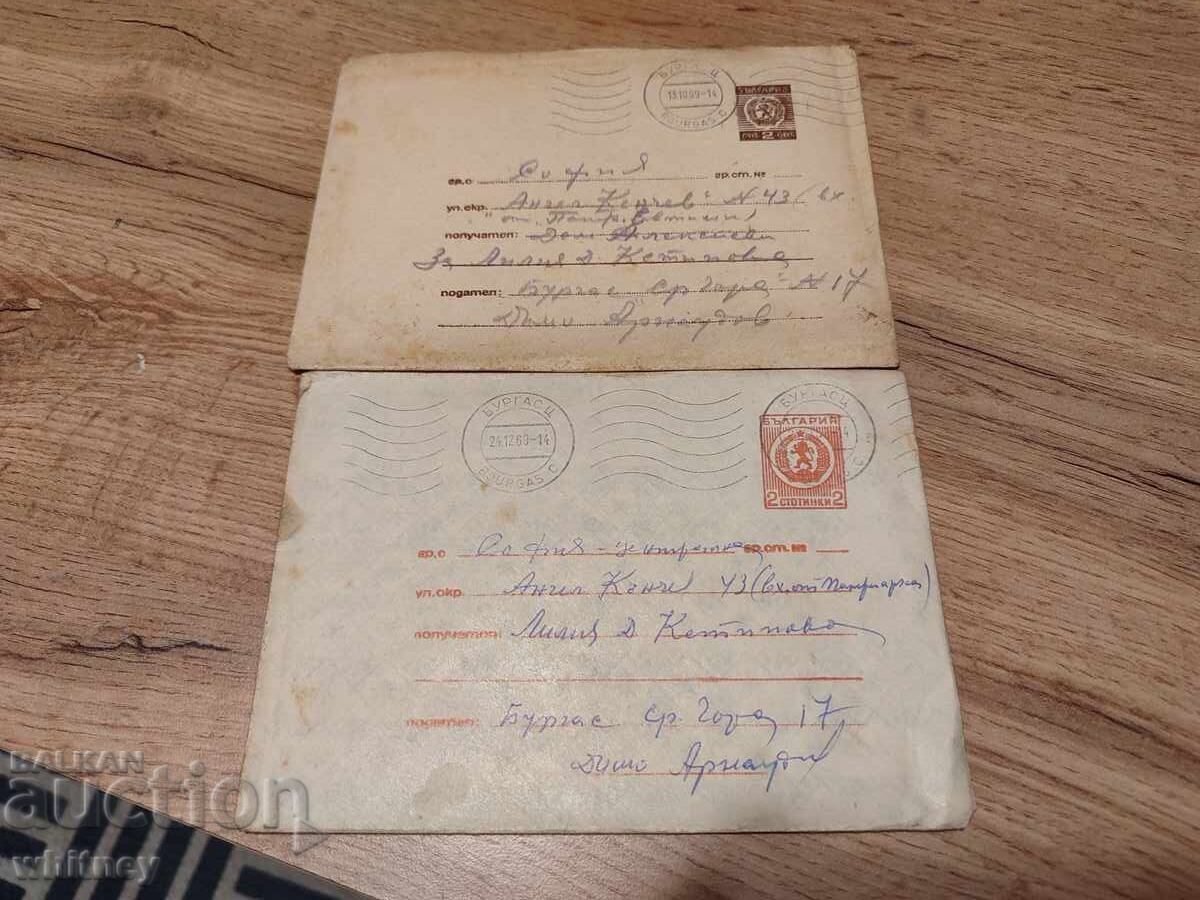 БУРГАС Ц
13.10.69-14
BOURGAS C
БЪЛГАРИЯ
2
гр.с София гр.ст.№
ул.окр. Ангел Кънчев" N 43 (вх
от „Патр.
получател: Дом Алексиеви
За Лилия Д Кетипова
подател: Бургас „Ср Гора" N 17
Димо Арнаудов
БУРГАС Ц
24.12.69-14
BOURGAS C
БУРГАС Ц
БЪЛГАРИЯ
2 СТОТИНКИ 2
гр.с София - централна гр.ст.№
ул.окр. Ангел Кънче 43 (вх. от Патриарха)
получател: Лилия Д Кетипова
подател: Бургас Ср. Гора 17
Димо Арнаудов
BALKAN
auction
whitney